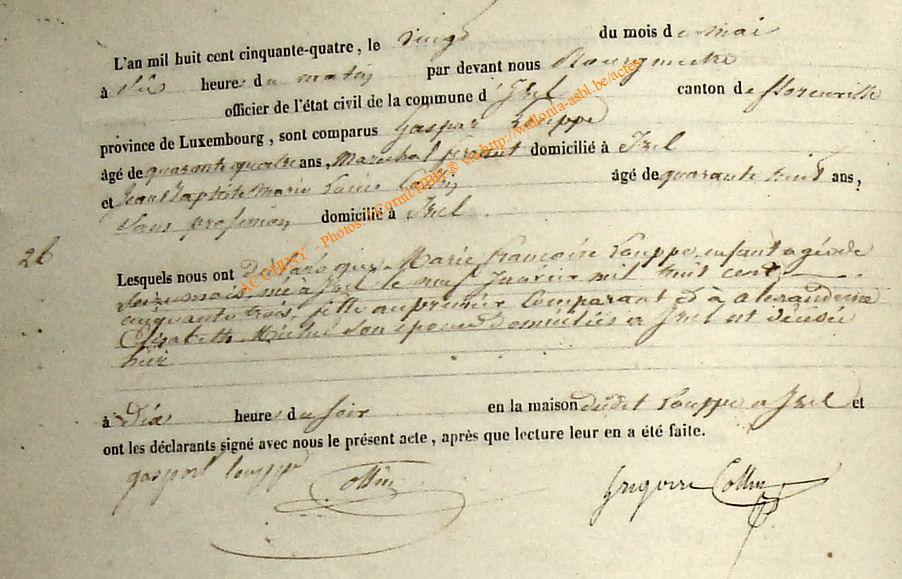 L'an mil huit cent cinquante-quatre, le vingt du mois de mai
à dix heures du matin par devant nous Bourgmestre
officier de l'état civil de la commune d'Izel canton de florenville
province de Luxembourg, sont comparus Gaspar Louppe
âgé de quarante quatre ans, Marechal ferant domicilié à Izel
et Jean Baptiste Marie Collin âgé de quarante huit ans,
Sans profession domicilié à Izel
26
Lesquels nous ont déclaré que Marie Françoise Louppe enfant agée de
Seize mois, née à Izel le neuf Janvier mil huit cent
cinquante trois, fille au premier Comparant et à alexandrine
Elisabeth Michel son epouse domiciliés a Izel est décédée
hier
à Dix heures du soir en la maison dudit Louppe a Izel et
ont les déclarants signé avec nous le présent acte, après que lecture leur en a été faite.
gaspart louppe Collin Grégoire Collin
ACCORNY - Photos: http://wallonia-asbl.be/actes